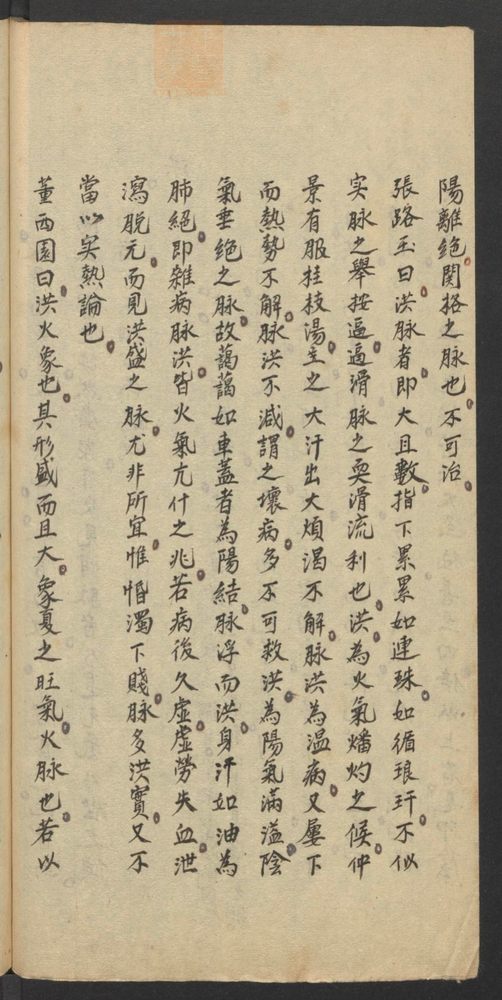 陽離绝関格之脉也不可治
張路玉曰洪脉者即大且數指下累累如連珠如循琅玕不似
实脉之舉按逼逼滑脉之耎滑流利也洪為火氣燔灼之候仲
景有服桂枝湯主之大汗出大煩渴不解脉洪為温病又屢下
而熱勢不解脉洪不減謂之壞病多不可救洪為陽氣滿溢陰
氣垂绝之脉故藹藹如車蓋者為陽結脉浮而洪身汗如油為
肺絕即雜病脉洪皆火氣亢什之兆若病後久虛虛勞失血泄
瀉脱元而見洪盛之脉尤非所宜惟惛濁下賤脉多洪實又不
當以实熱論也
董西園曰洪火象也其形盛而且大象夏之旺氣火脉也若以